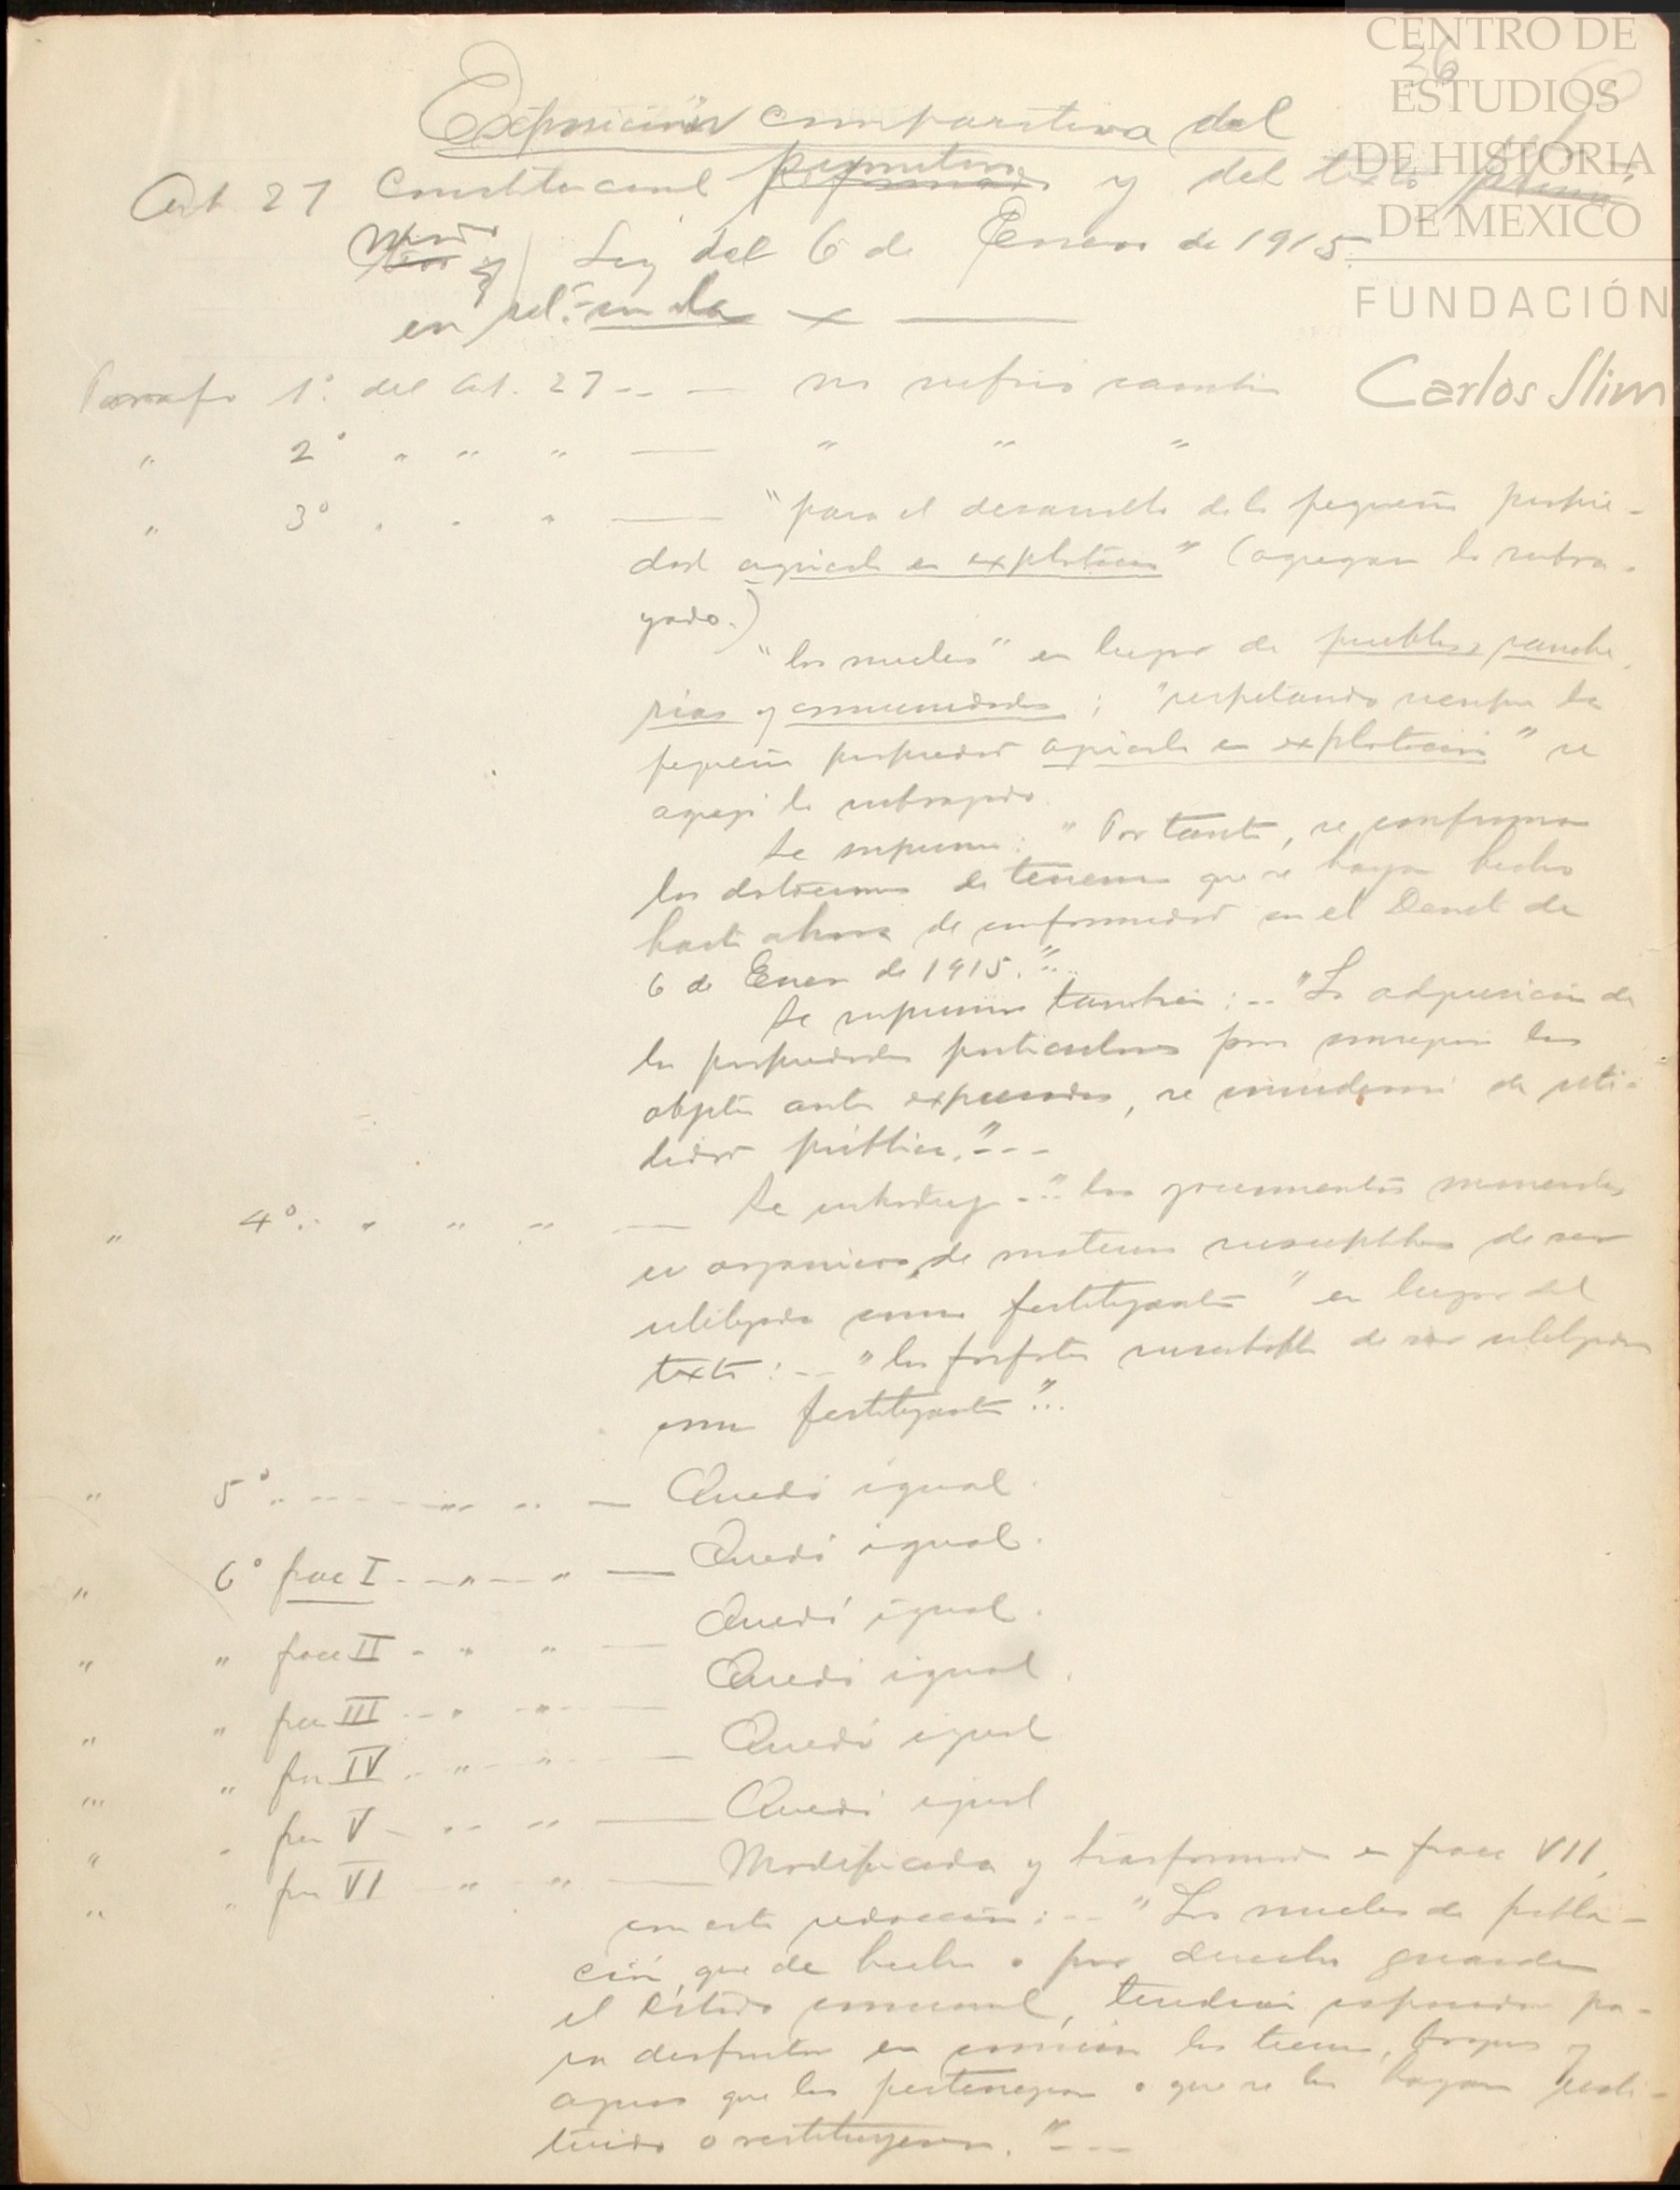 CENTRO DE
ESTUDIOS
DE HISTORIA
DE MEXICO
FUNDACIÓN
Carlos Slim
36
Exposición comparativa del
Art. 27 Constitucional primitivo y del texto
Ley del 6 de Enero de 1915.
en rel. con la
Parrafo 1º del Art. 27 -- — no sufrió cambio
" 2º " " " — " " "
" 3º " " " — "para el desarrollo de la pequeña propie-
dad agricola en explotacion" (agregan lo subra-
yado.)
"los nucleos" en lugar de pueblos, ranche
rias y comunidades; "respetando siempre la
pequeña propiedad agricola en explotación" se
agregó lo subrayado.
Se suprime: "Por tanto, se confirman
las dotaciones de terrenos que se hayan hecho
hasta ahora de conformidad con el Decreto de
6 de Enero de 1915."..
Se suprime tambien: -- "La adquisición de
las propiedades particulares para conseguir los
objetos antes expresados, se considerará de utili-
dad pública."---
" 4º.. " " " — Se introdujo -" los yacimientos minerales
u organicos de materias susceptibles de ser
utilizadas como fertilizantes" en lugar del
texto: -- "los fosfatos susceptibles de ser utilizados
como fertilizantes"..
" 5º — Quedó igual.
" 6º frac I - — Quedó igual.
" " frac II - " " — Quedó igual.
" " frac III - " " — Quedó igual.
" " frac IV - " " — Quedó igual
" " frac V - " " — Quedó igual
" " frac VI " " — Modificada y trasformada en fracc VII,
con esta redacción: -- "Los nucleos de pobla-
ción, que de hecho o por derecho guarden
el estado comunal, tendrán capacidad pa-
ra disfrutar en común las tierras, bosques y
aguas que les pertenezcan o que se les hayan resti-
tuido o restituyeren."---